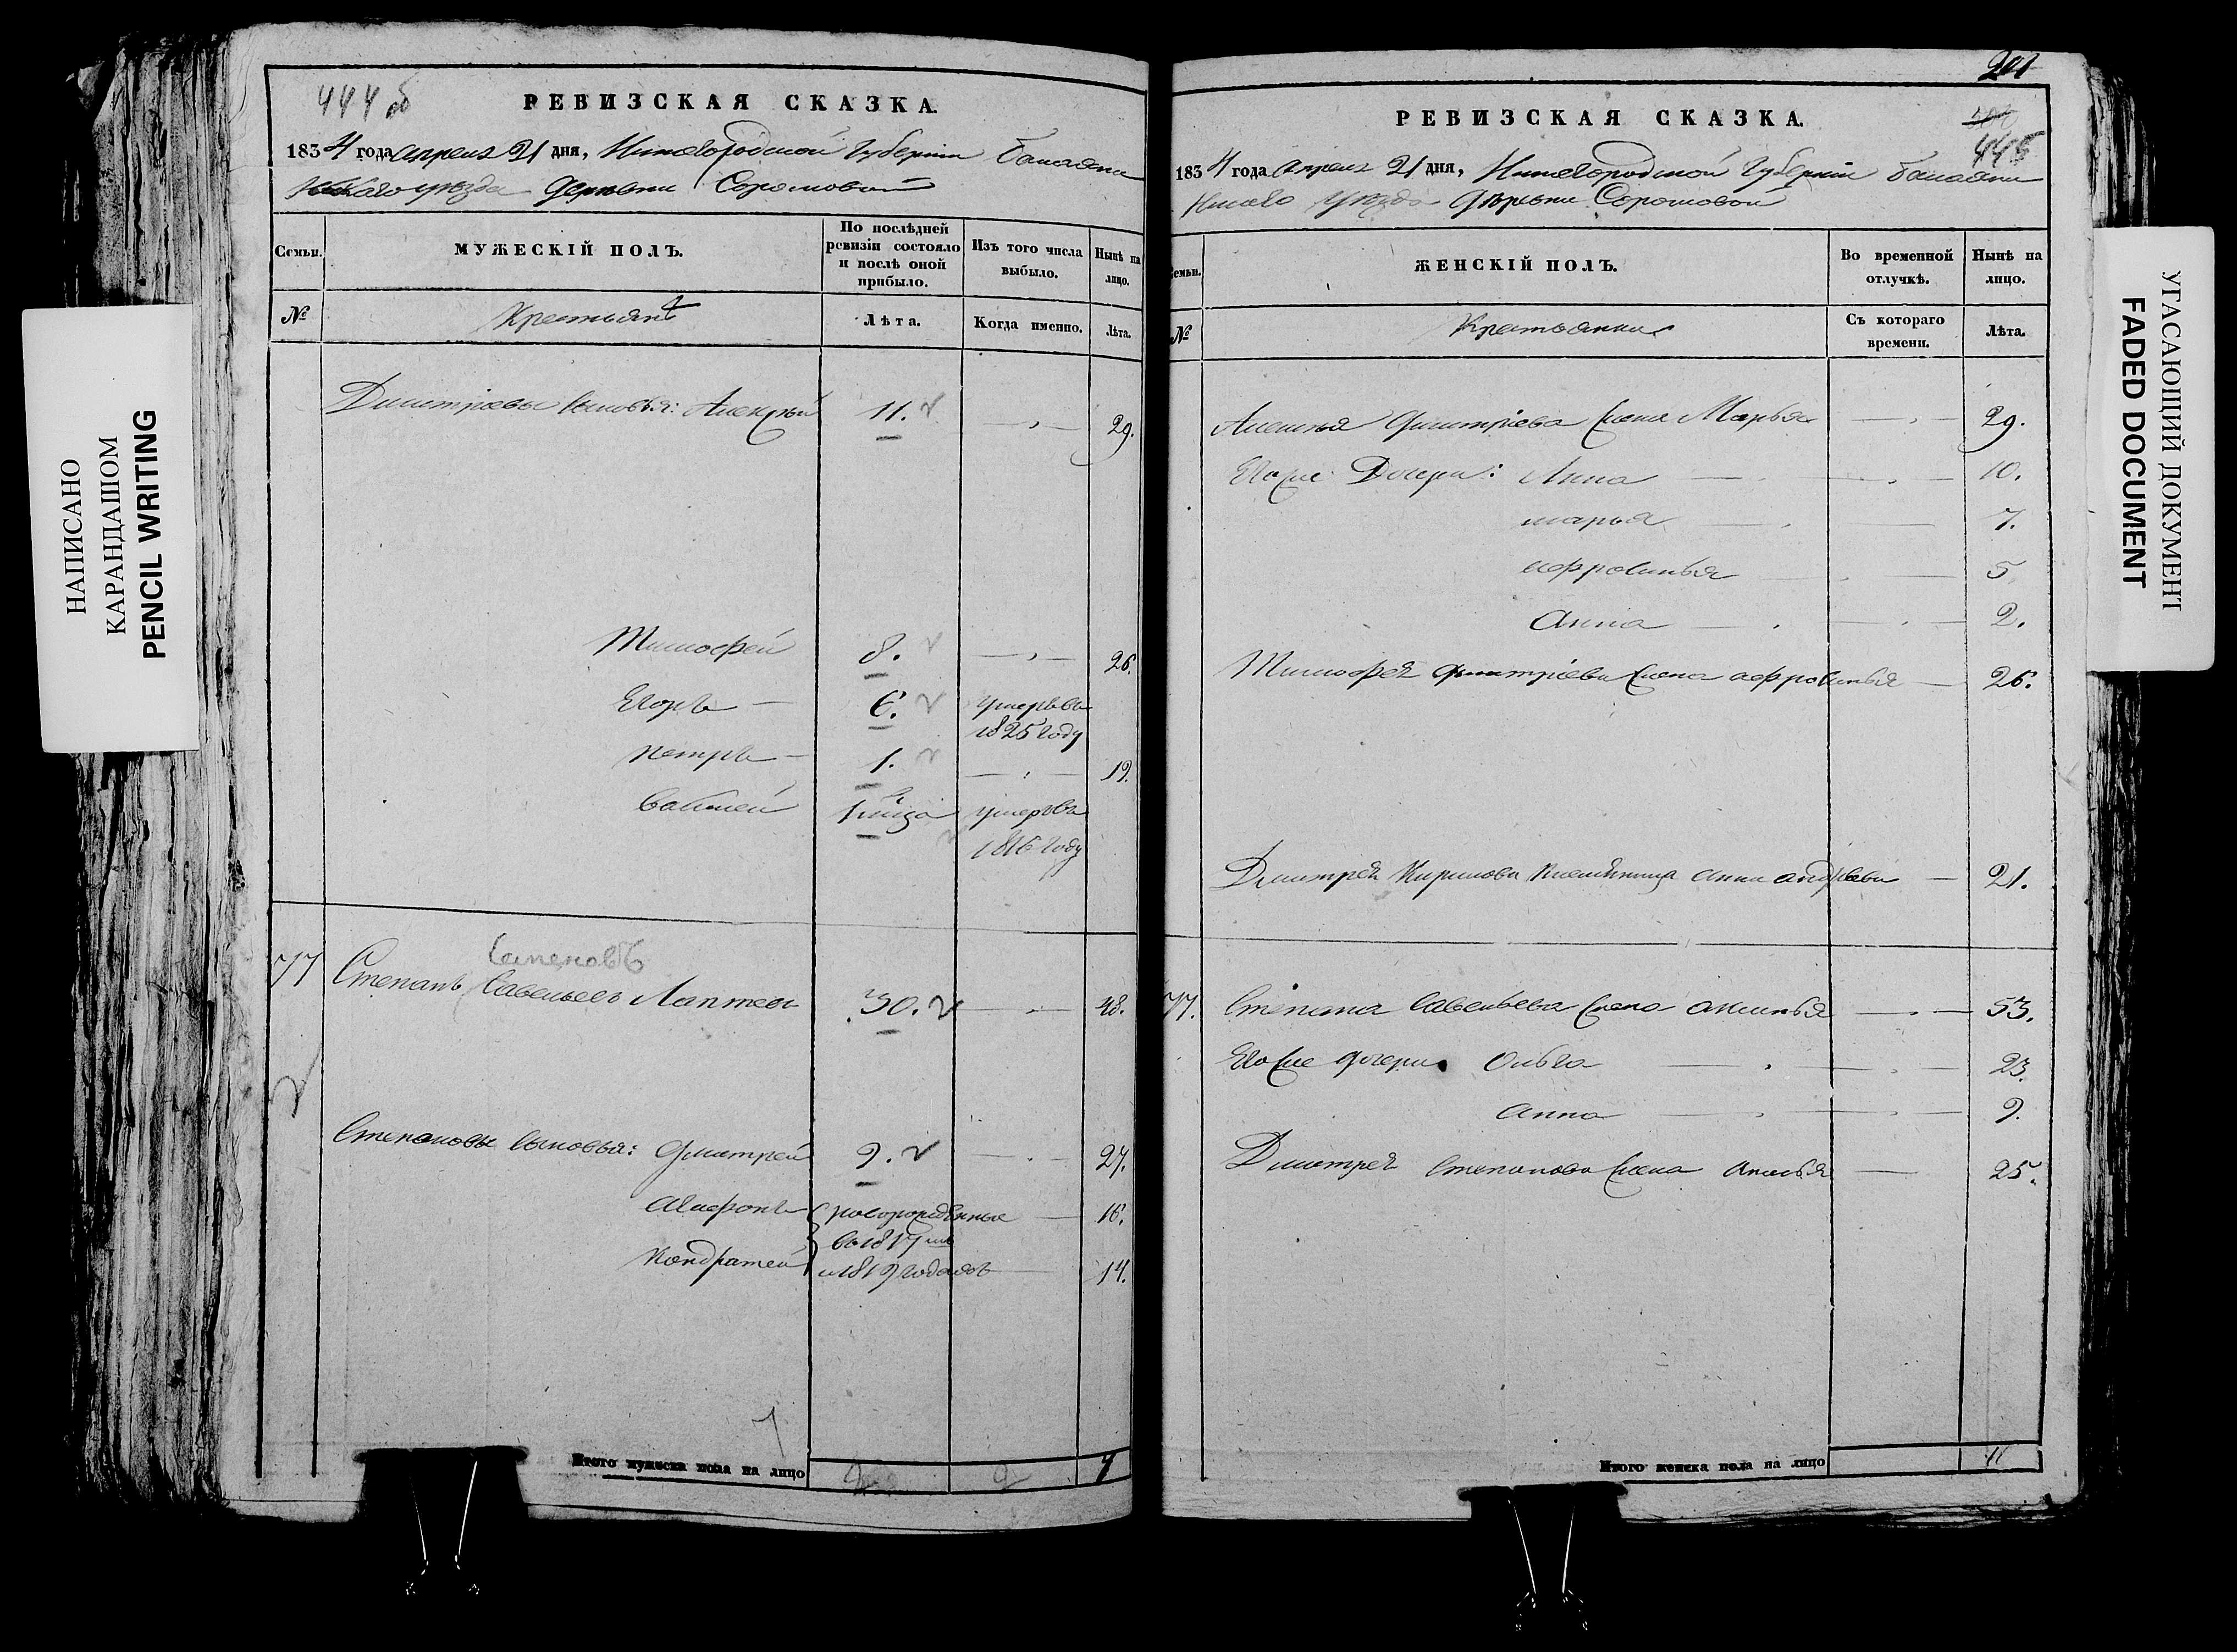 НАПИСАНО
КАРАНДАШОМ
PENCIL WRITING
444 об
РЕВИЗСКАЯ СКАЗКА.
1834 года апреля 21 дня, Нижегородской Губернии Балахни
нскаго уезда деревни Соромовой
Семьи. МУЖЕСКІЙ ПОЛЪ. По послѣдней ревизіи состояло и послѣ оной прибыло. Изъ того числа выбыло. Нынѣ на лицо.
№ Крестьянѣ Лѣта. Когда именно. Лѣта.
Дмитріевы сыновья: Алексѣй 11. 29.
Тимофей 8. 26.
Егоръ 6. умеръ въ 1825 году
петръ 1. 19.
василей умеръ въ 1816 году
Семеновъ
77 Степанъ Савельевъ Лаптевъ 30. 48.
Степановы сыновья: Дмитрей 9. 27.
новорожденные 16.
въ 1817 мъ
Кондратей и 1819 годахъ 14.
7
Итого мужеска пола на лицо 9 2 7
201
445
РЕВИЗСКАЯ СКАЗКА.
1834 года Апреля 21 дня, Нижегородской Губерніи Балахни
нскаго уѣзда дѣревни Соромовой
Семьи. ЖЕНСКІЙ ПОЛЪ. Во временной отлучкѣ. Нынѣ на лицо.
№ Крестьянки Съ котораго времени. Лѣта.
Алексѣя Дмитріева жена Марья 29.
Его же Дочери: Анна 10.
марья 7.
афросинья 5
Анна 2.
Тимофея дмитріева жена афросинья 26.
Дмитрея Кирилова племянница анна андреева 21.
77. Степана Савельева жена аксинья 53.
Его же дочери Ольга 23.
анна 9.
Дмитрея Степанова жена 25.
Итого женска пола на лицо 11
УГАСАЮЩИЙ ДОКУМЕНТ
FADED DOCUMENT